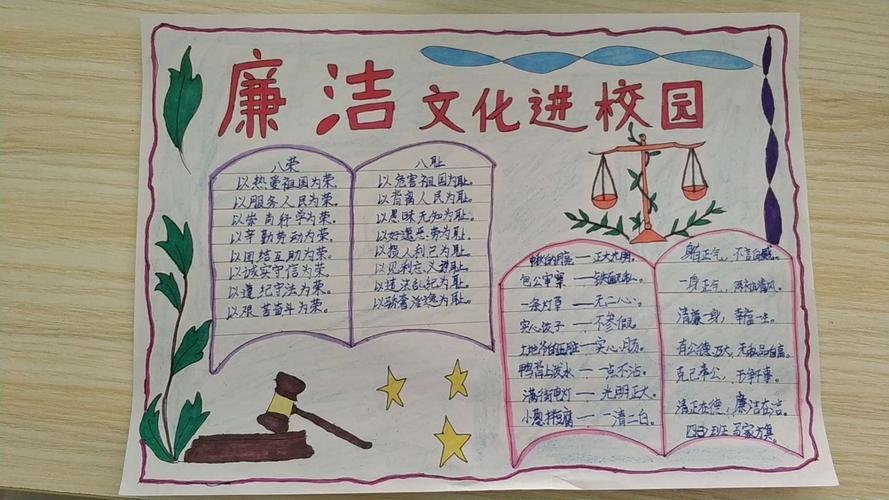 廉洁文化进校园
八荣
以热爱祖国为荣。
以服务人民为荣。
以崇尚科学为荣。
以辛勤劳动为荣。
以团结互助为荣。
以诚实守信为荣。
以遵纪守法为荣。
以艰苦奋斗为荣。
八耻
以危害祖国为耻。
以背离人民为耻。
以愚昧无知为耻。
以好逸恶劳为耻。
以损人利己为耻。
以见利忘义为耻。
以违法乱纪为耻。
以骄奢淫逸为耻。
中秋的月亮——正大光明。
包公审案——铁面无私。
一条灯草——无二心。
实心饺子——不掺假。
土地爷的五脏——实心
鸭背上泼水——一点不沾。
满街电灯——光明正大。
小葱拌豆腐——一清二白。
正气，不言自威。
一身正气，两袖清风。
清廉一身，幸福一生。
有公德乃大，无私品自高。
克己奉公，
清正在德，廉洁在志。
班 马家旗